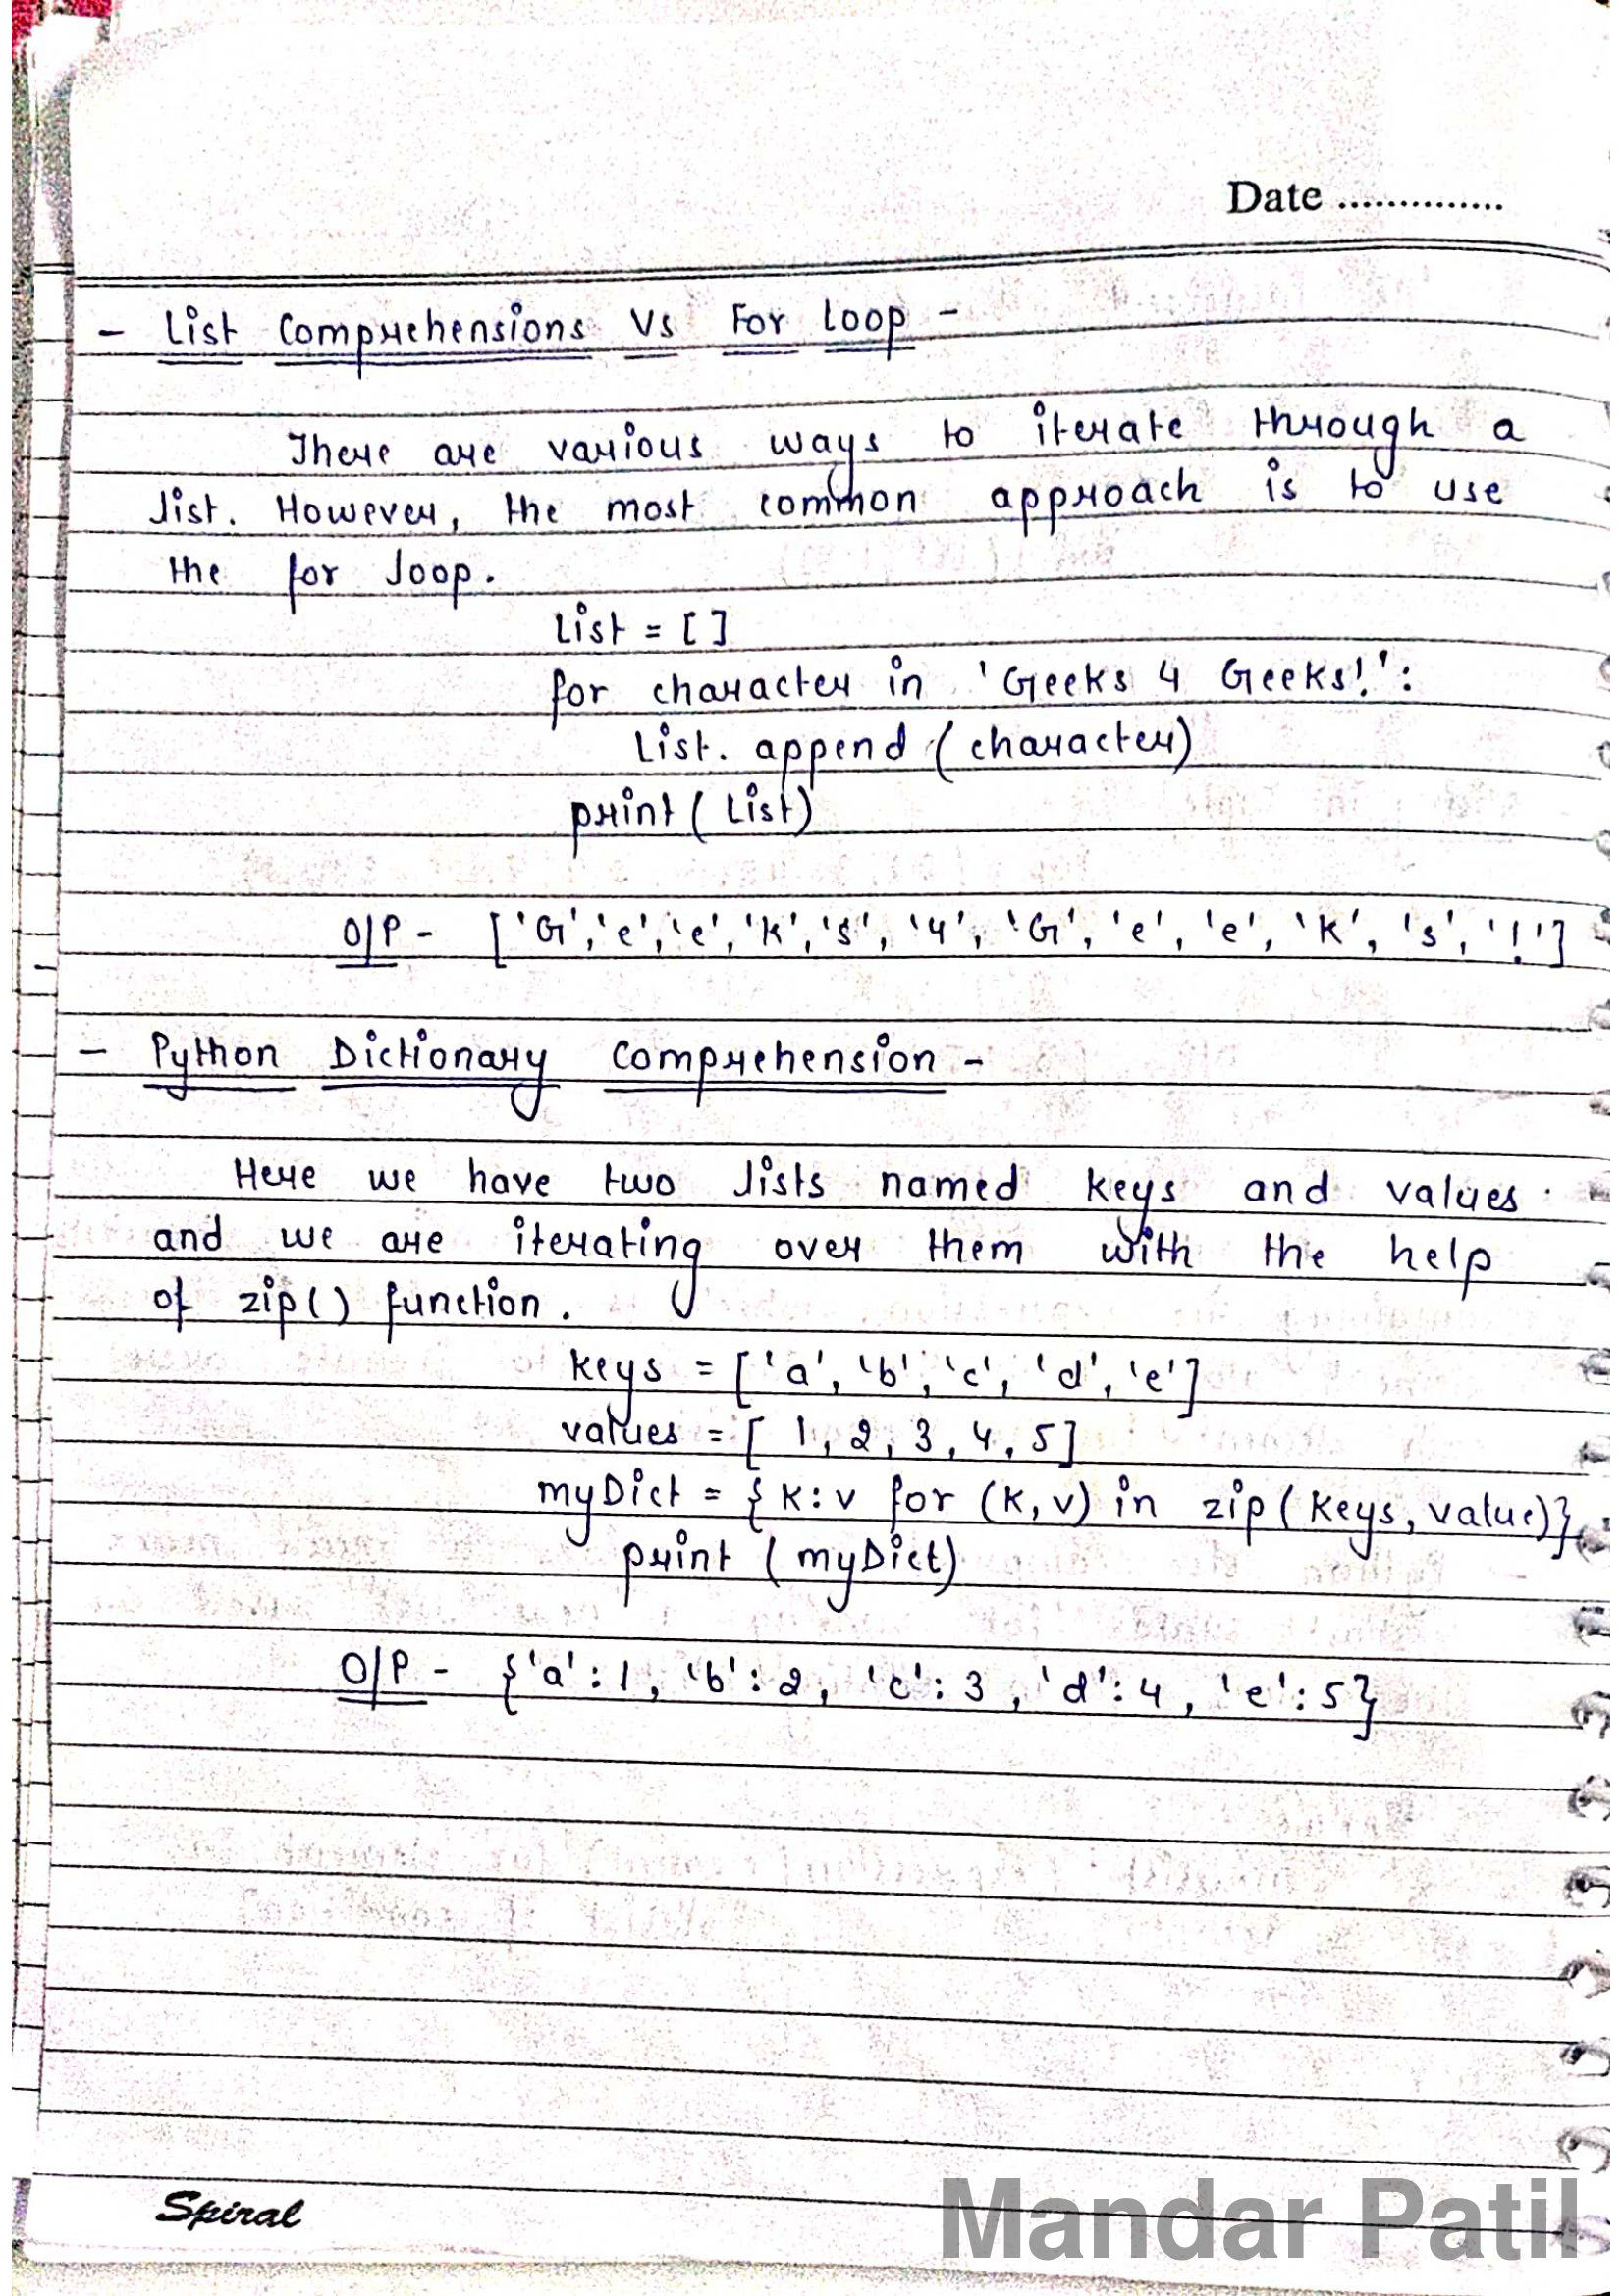 Date ..............
- List Comprehensions Vs For Loop -
There are various ways to iterate through a
list. However, the most common approach is to use
the for loop.
List = []
for character in 'Geeks 4 Geeks!':
List. append (character)
print ( List)
O/P - ['G','e','e','k','s', '4', 'G', 'e', 'e', 'k', 's', '!']
- Python Dictionary Comprehension -
Here we have two lists named keys and values
and we are iterating over them with the help
of zip() function.
keys = ['a', 'b', 'c', 'd', 'e']
values = [ 1, 2, 3, 4, 5]
myDict = { k:v for (k, v) in zip ( keys, value)}
print ( myDict)
O/P - {'a':1, 'b':2, 'c':3, 'd':4, 'e':5}
Spiral
Mandar Patil